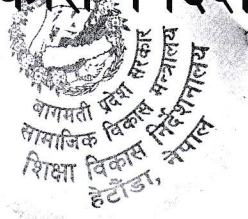 बागमती प्रदेश सरकार
सामाजिक विकास मन्त्रालय
शिक्षा विकास निर्देशनालय
हेटौंडा, नेपाल